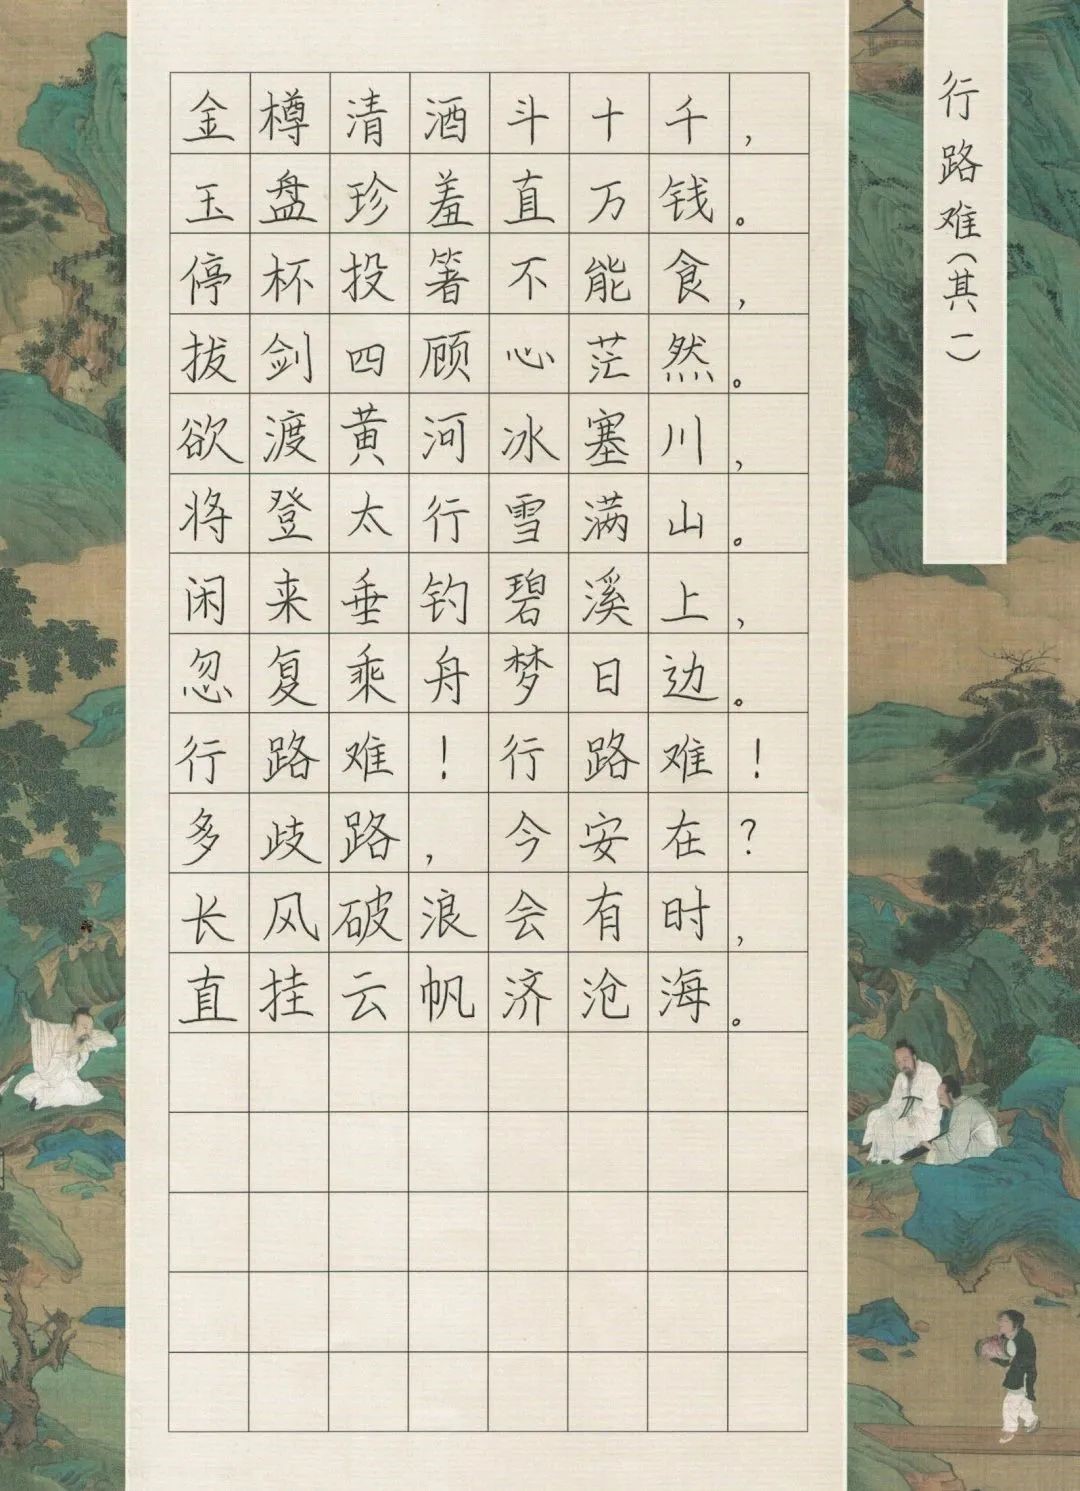 行路难(其一)
金樽清酒斗十千，
玉盘珍羞直万钱。
停杯投箸不能食，
拔剑四顾心茫然。
欲渡黄河冰塞川，
将登太行雪满山。
闲来垂钓碧溪上，
忽复乘舟梦日边。
行路难！行路难！
多歧路，今安在？
长风破浪会有时，
直挂云帆济沧海。